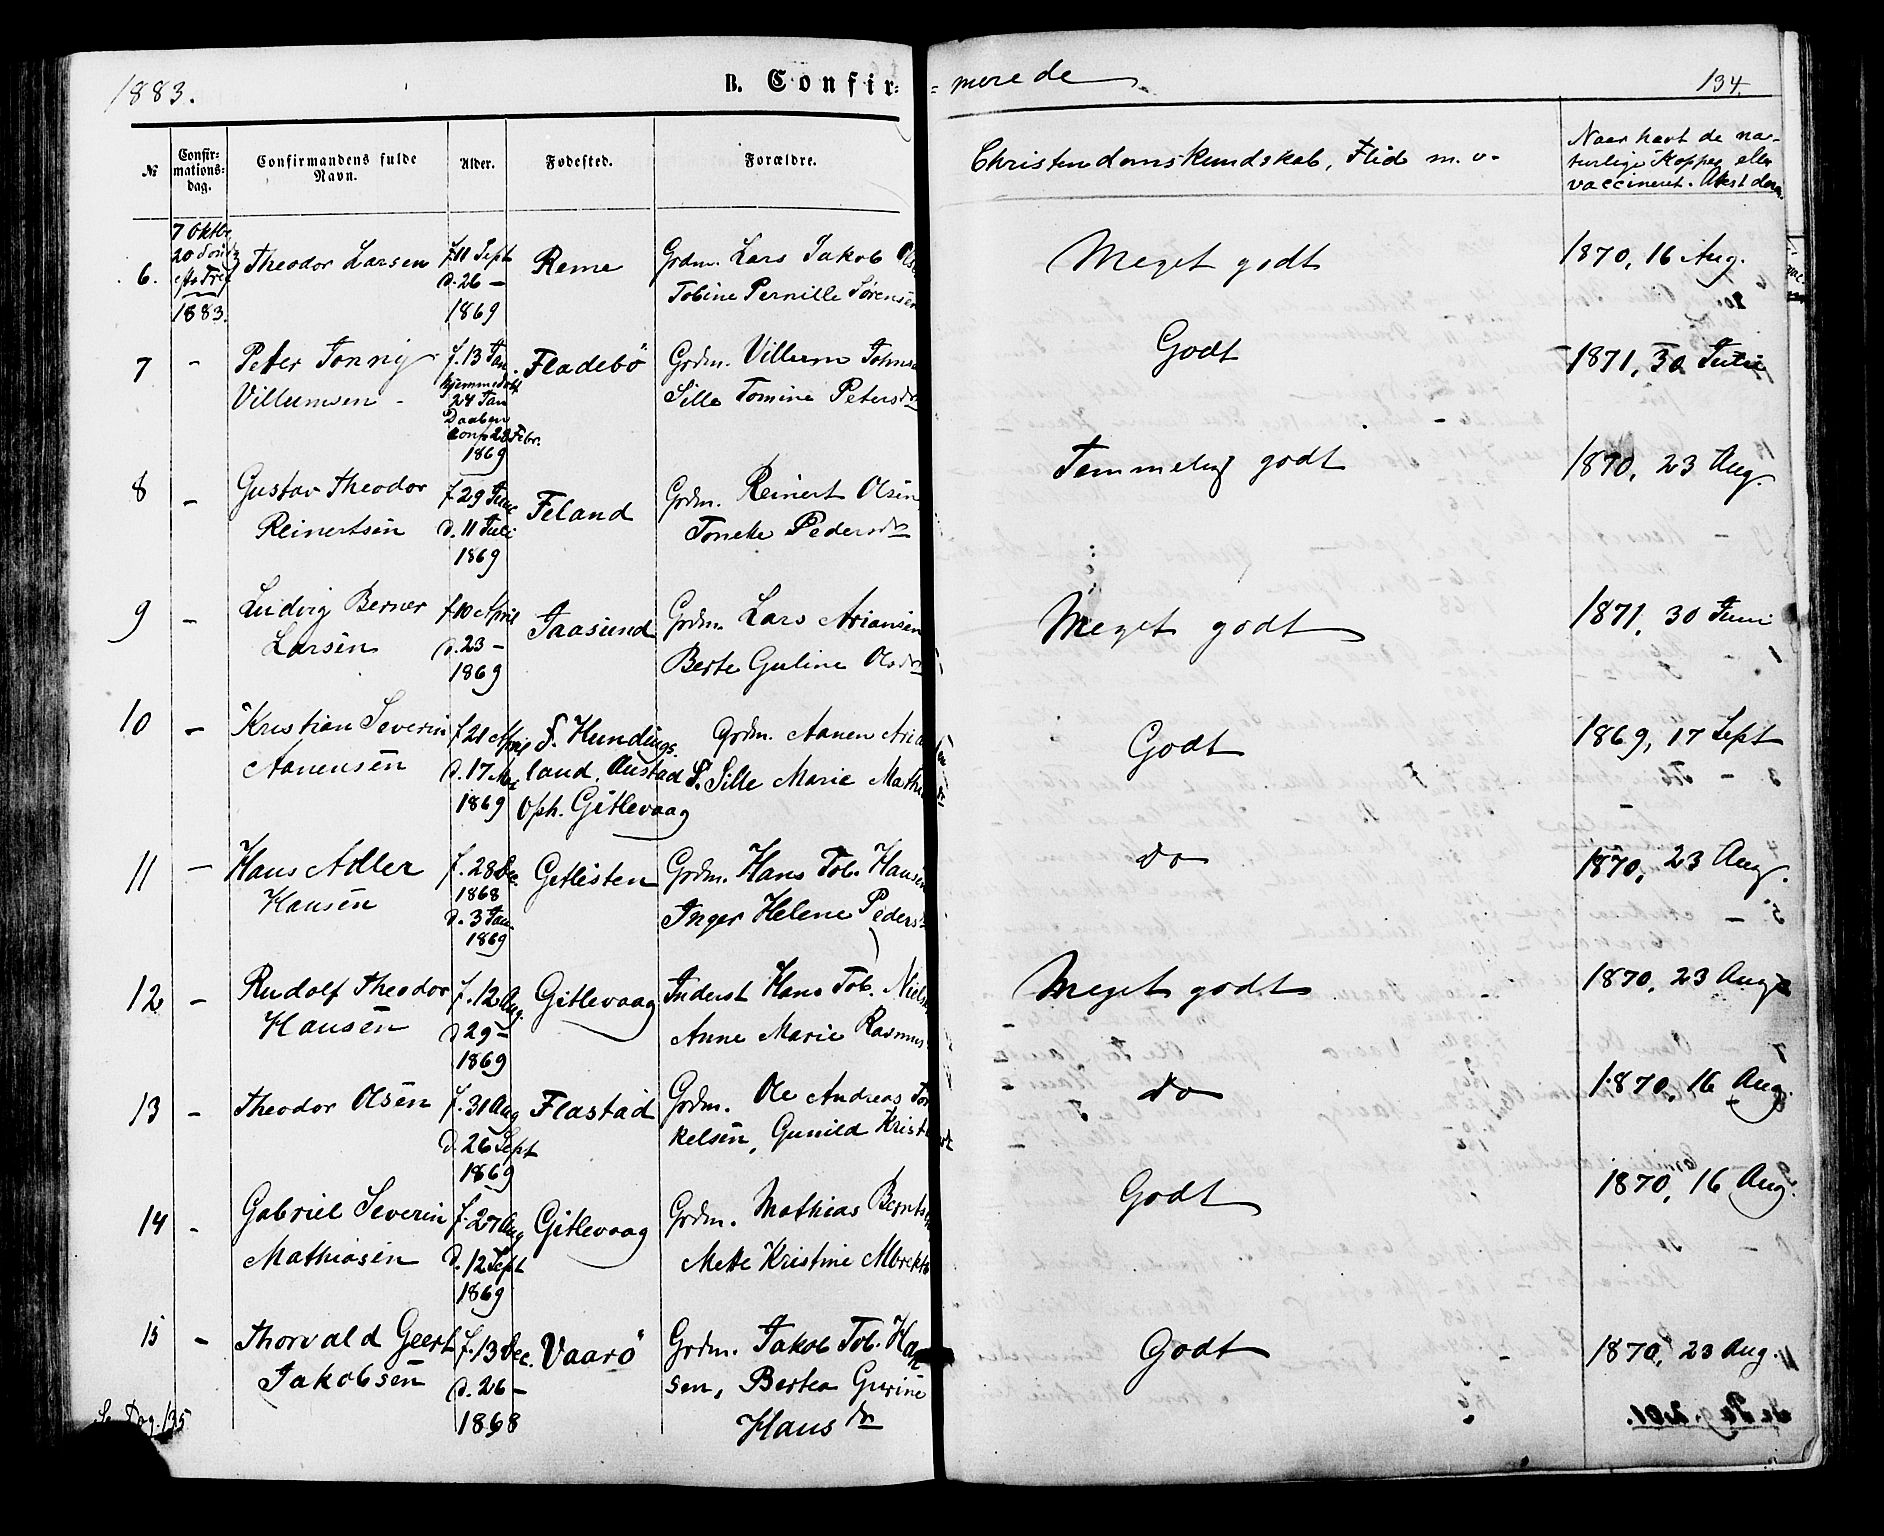 1883. B. Confir= =merede 134.
№ Confir-mations-dag. Confirmandens fulde Navn. Alder. Fødested. Forældre. Christendomskundskab, Flid m. v. Naar havt de na-
turlige Kopper eller
vaccineret. Attest derom.
7 Oktbr
20 Sønd.
Tref
1883.
6. Theodor Larsen f. 11 Sept Reme Grdm. Lars Jakob Meget godt 1870, 16 Aug.
d. 26 – Tobine Pernille Sørensen
1869
7 – Peter Tonnig f. 13 Jan Fladebö Grdm. Villum Godt 1871, 30 Juni
Villumsen – hjemmedøbt Sille Tomine Petersdr
24 Jan
Daaben
conf 28 Febr.
1869
8 – Gustav Theodor f. 29 Juni Feland Grdm. Reinert Olsen Temmelig godt 1870, 23 Aug.
Reinertsen d. 11 Juli Toneke Pedersdr
1869
9 – Ludvig Berner f. 10 April Jaasund Grdm. Lars Ariansen Meget godt 1871, 30 Juni
Larsen d. 23 – Berte Guline Olsdr
1869
10 – Kristian Severin f. 21 April f. Hundings Grdm. Aanen Godt 1869, 17 Sept
Aanensen d. 17 land, Austad S. Sille Marie
1869 Oph. Gitlevaag
11 – Hans Adler f. 28 Dec. Getlesten Grdm. Hans Tob. Hansen do 1870, 23 Aug.
Hansen 1868 Inger Helene Peders
d. 3 Jan.
1869
12 – Rudolf Theodor f. 12 Aug. Gitlevaag Inderst Hans Tob. Meget godt 1870, 23 Aug
Hansen d 29 – Anne Marie Rasmus
1869
13 – Theodor Olsen f. 31 Aug Flastad Grdm. Ole Andreas Tor do 1870, 16 Aug.
d. 26 Sept kelsen, Gunild
1869
14 – Gabriel Severin f. 27 Aug Gitlevaag Grdm. Mathias Berntsen Godt 1870, 16 Aug.
Mathiasen d. 12 Sept Mette Kristine
1869
15 – Thorvald Geert f. 13 Dec. Vaarö Grdm. Jakob Tob. Han Godt 1870, 23 Aug.
Jakobsen d. 26 – sen, Bertea Gurine
1868 Hansdr
Se Pag. 135 Se Pag. 201.